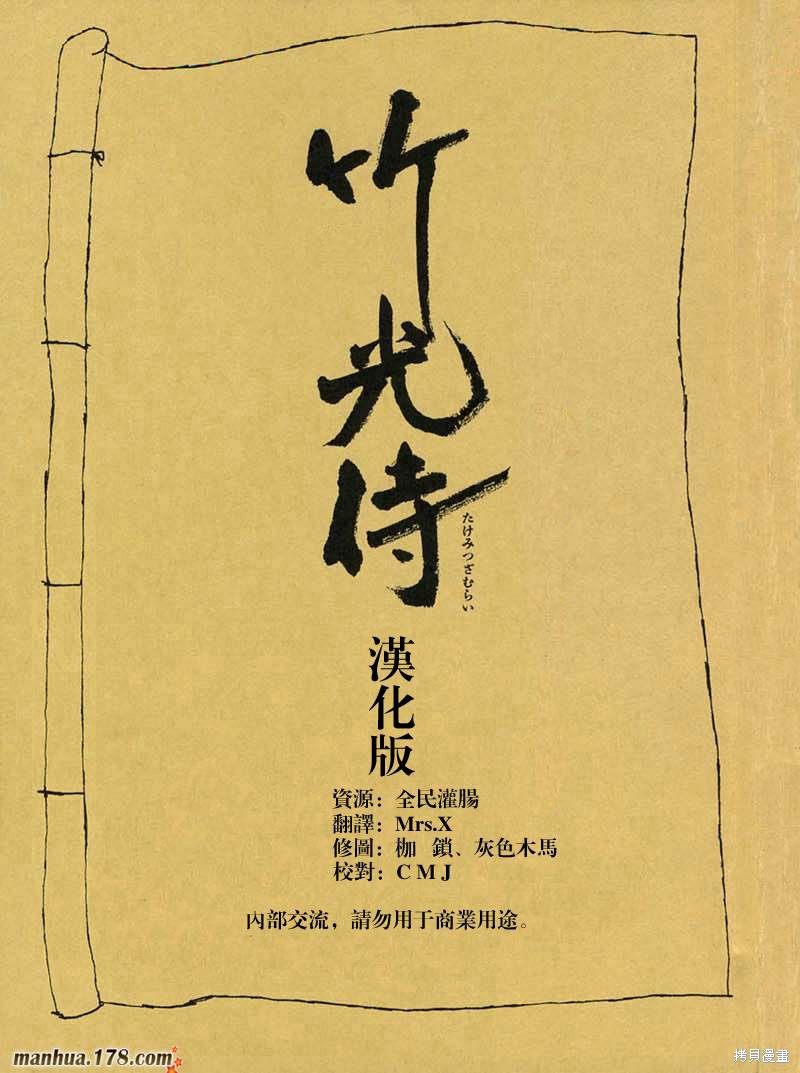 竹光侍
たけみつざむらい
漢化版
資源：全民灌腸
翻譯：Mrs.X
修圖：枷 鎖、灰色木馬
校對：C M J
內部交流，請勿用于商業用途。
manhua.178.com
拷貝漫畫